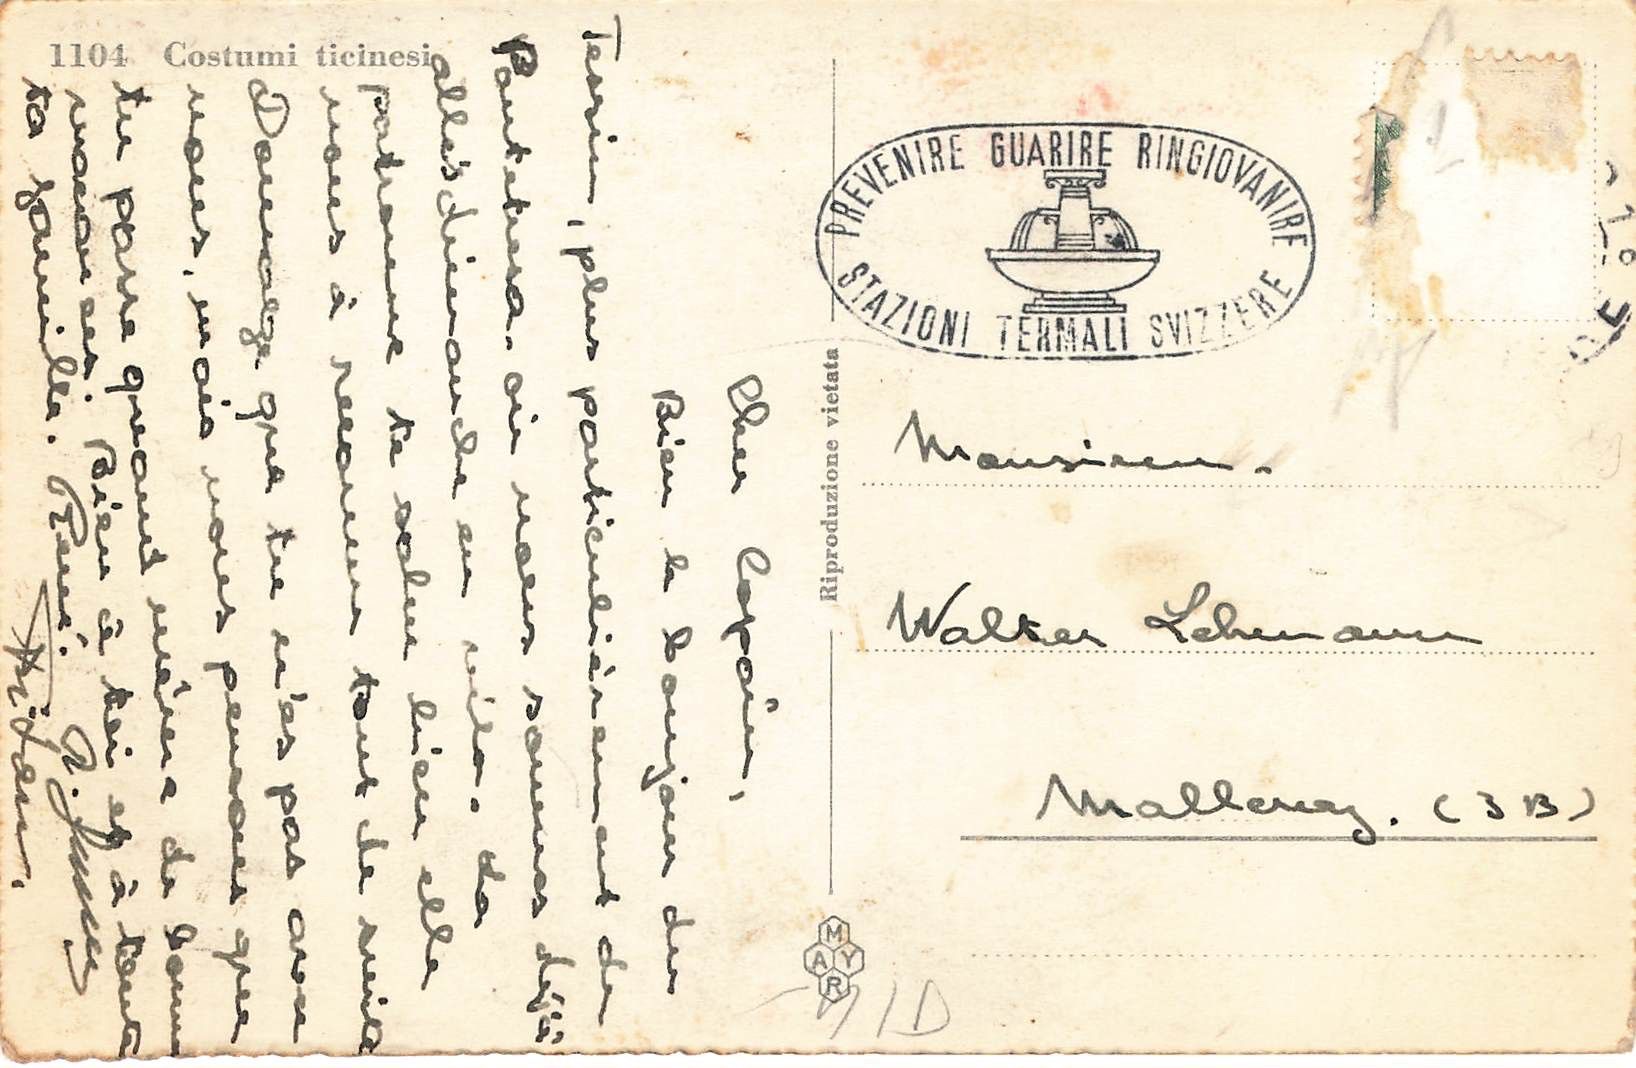 1104 Costumi ticinesi
Cher Copain,
Bien le bonjour du
Tessin, plus particulièrement de
Ponte Tresa. où nous sommes déjà
allés dimanche en vélo. La
patronne te salue bien elle
nous à reconnu tout de suite
Dommage que tu n'es pas avec
nous, mais nous pensons que
tu passe quand même de bonnes
vacances. Bien à toi et à toute
ta famille. René.
Riproduzione vietata
PREVENIRE GUARIRE RINGIOVANIRE
STAZIONI TERMALI SVIZZERE
Monsieur.
Walter Lehmann
Malleray. (JB)
MAYR